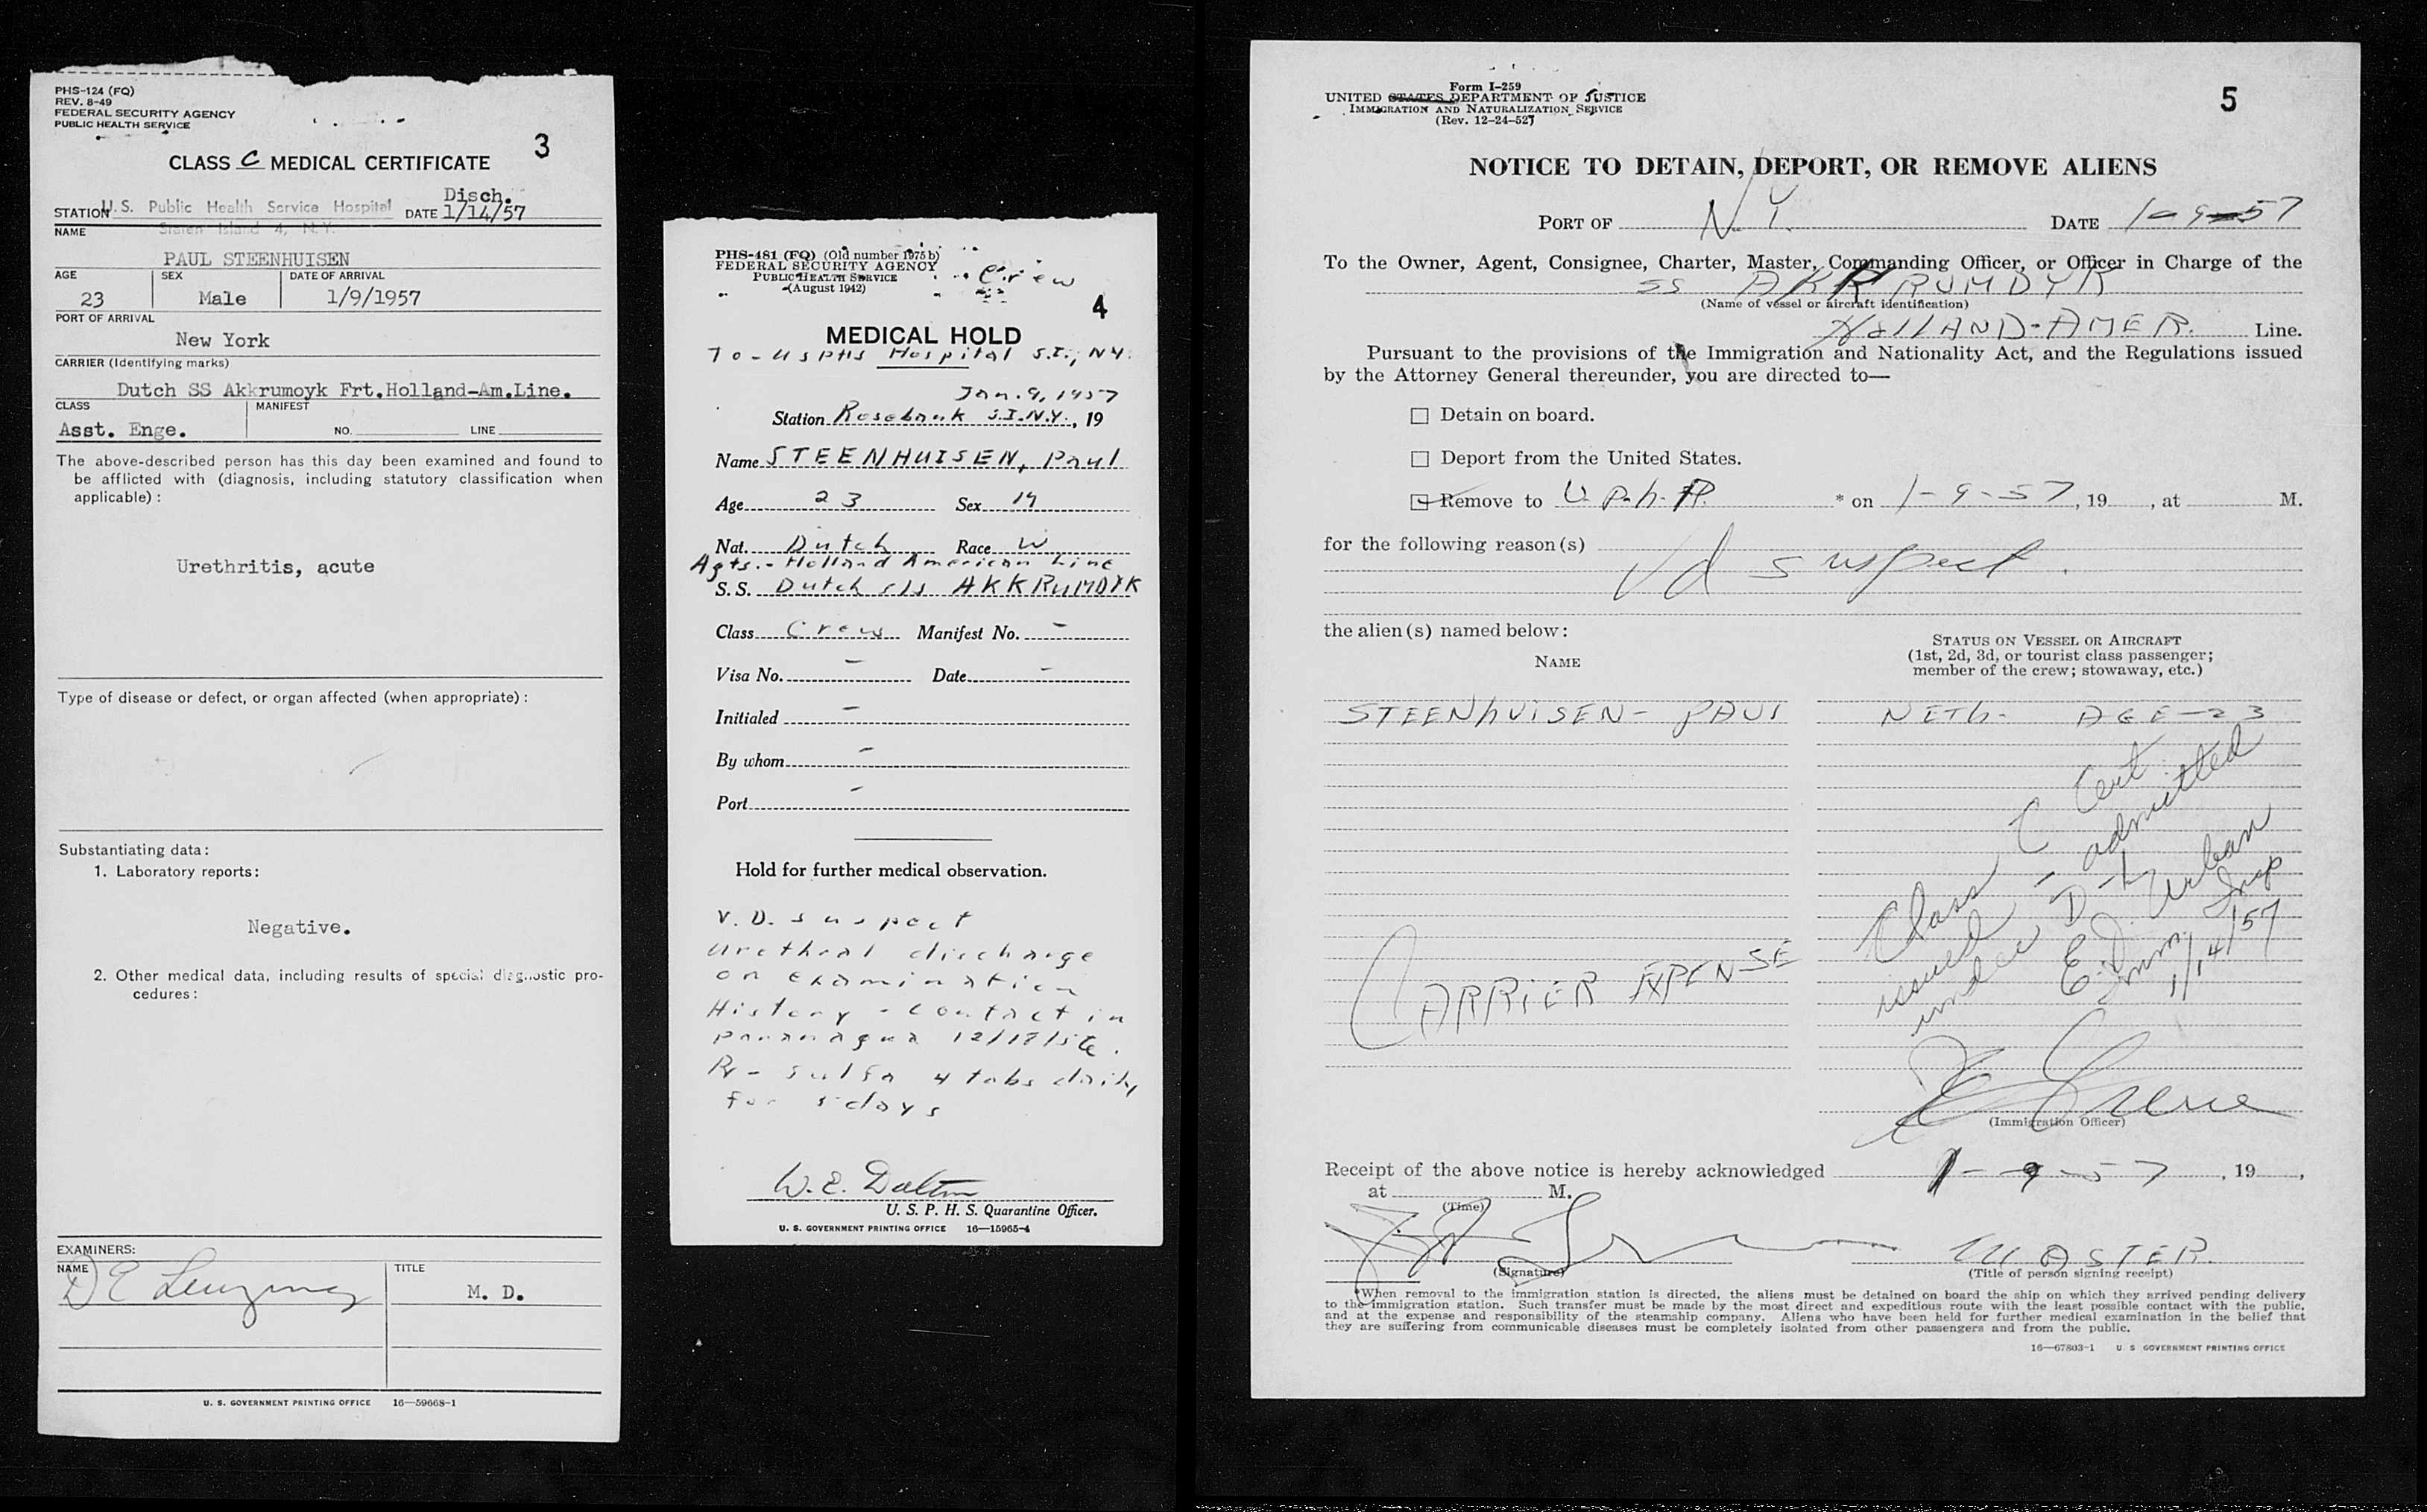 PHS-124 (FQ)
REV. 8-49
FEDERAL SECURITY AGENCY
PUBLIC HEALTH SERVICE
3
CLASS C MEDICAL CERTIFICATE
Disch.
STATION U.S. Public Health Service Hospital DATE 1/14/57
Staten Island 4, N.Y.
NAME
PAUL STEENHUISEN
AGE SEX DATE OF ARRIVAL
23 Male 1/9/1957
PORT OF ARRIVAL
New York
CARRIER (Identifying marks)
Dutch SS Akkrumoyk Frt.Holland-Am.Line.
CLASS MANIFEST
Asst. Enge. NO. LINE
The above-described person has this day been examined and found to
be afflicted with (diagnosis, including statutory classification when
applicable):
Urethritis, acute
Type of disease or defect, or organ affected (when appropriate):
Substantiating data:
1. Laboratory reports:
Negative.
2. Other medical data, including results of special diagnostic pro-
cedures:
EXAMINERS:
NAME TITLE
D E M. D.
U. S. GOVERNMENT PRINTING OFFICE 16—59668-1
PHS-481 (FQ) (Old number 1975b)
FEDERAL SECURITY AGENCY
PUBLIC HEALTH SERVICE
(August 1942)
Crew
4
MEDICAL HOLD
To - USPHS Hospital S.I., NY.
Jan. 9, 1957
Station Rosebank S.I.N.Y., 19
Name STEENHUISEN, Paul
Age 23 Sex M
Nat. Dutch Race W
Agts. - Holland American Line
S. S. Dutch s/s AKKRUMDYK
Class Crew Manifest No. -
Visa No. - Date -
Initialed -
By whom -
Port -
Hold for further medical observation.
V.D. suspect
Urethral discharge
on examination
History - contact in
Paranagua 12/18/56.
Rx - Sulfa 4 tabs daily
for 5 days
W. E. Dalton
U. S. P. H. S. Quarantine Officer.
U. S. GOVERNMENT PRINTING OFFICE 16—15965-4
Form I-259
UNITED STATES DEPARTMENT OF JUSTICE
IMMIGRATION AND NATURALIZATION SERVICE
(Rev. 12-24-52)
5
NOTICE TO DETAIN, DEPORT, OR REMOVE ALIENS
PORT OF N.Y. DATE 1-9-57
To the Owner, Agent, Consignee, Charter, Master, Commanding Officer, or Officer in Charge of the
SS AKKRUMDYK
(Name of vessel or aircraft identification)
HOLLAND-AMER. Line.
Pursuant to the provisions of the Immigration and Nationality Act, and the Regulations issued
by the Attorney General thereunder, you are directed to—
☐ Detain on board.
☐ Deport from the United States.
☐ Remove to U.P.h.H. * on 1-9-57, 19 , at M.
for the following reason(s)
Vd suspect.
the alien(s) named below:
NAME
STATUS ON VESSEL OR AIRCRAFT
(1st, 2d, 3d, or tourist class passenger;
member of the crew; stowaway, etc.)
STEENhUISEN- PAUL NETh- AGE-23
Class C Cert
issued - admitted
under D-1
E.J. Urban
Imm. Insp
1/14/57
CARRIER EXPENSE
(Immigration Officer)
Receipt of the above notice is hereby acknowledged 1-9-57, 19 ,
at M.
(Time)
MASTER.
(Signature) (Title of person signing receipt)
*When removal to the immigration station is directed, the aliens must be detained on board the ship on which they arrived pending delivery
to the immigration station. Such transfer must be made by the most direct and expeditious route with the least possible contact with the public,
and at the expense and responsibility of the steamship company. Aliens who have been held for further medical examination in the belief that
they are suffering from communicable diseases must be completely isolated from other passengers and from the public.
16—67803-1 U. S GOVERNMENT PRINTING OFFICE